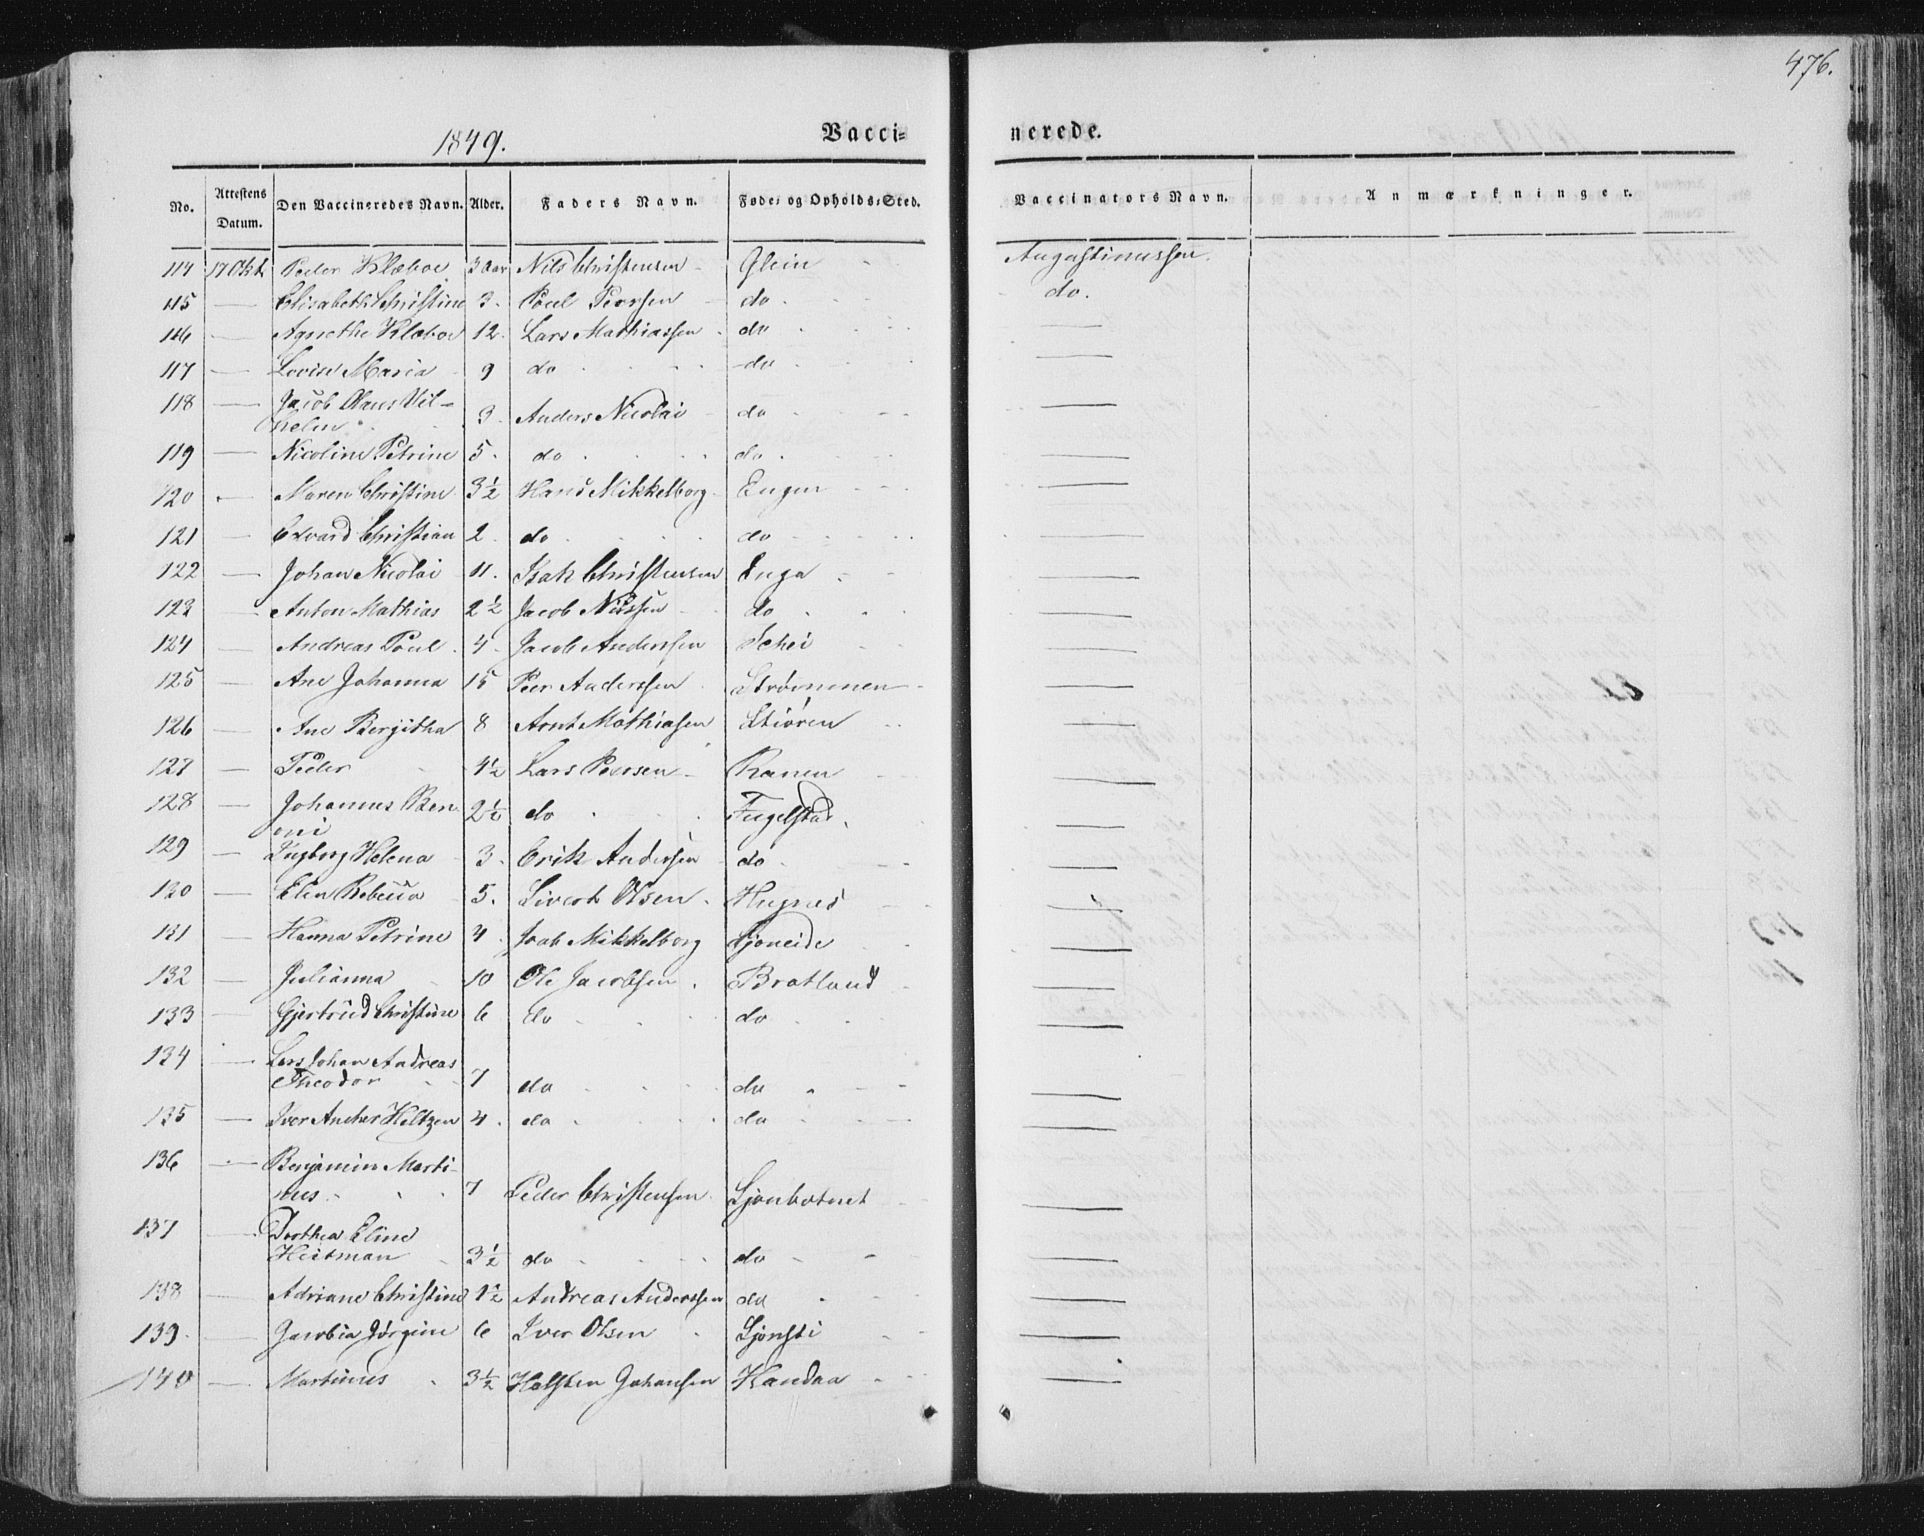 476.
1849.
Vacci=
nerede.
No. Attestens Datum. Den Vaccineredes Navn. Alder. Faders Navn. Føde- og Opholds-Sted. Vaccinators Navn. Anmærkninger.
114 17 Okt Peder Klæboe 3 Aar Nils Christensen Glein Augustinussen.
115 — Elisabeth Christine 3. Poul Peersen do. do.
116 — Agnethe Klæboe 12. Lars Mathiassen do —
117 — Lovise Maria 9 do do —
118 — Jacob Olaus Vil-
helm 3. Anders Nicolai do —
119 — Nicoline Petrine 5. do do. —
120 — Maren Christine 3½ Hans Mikkelborg Engen —
121 — Edvard Christian 2. do do —
122 — Johan Nicolai 11. Isak Christensen Enga —
123 - Anton Mathias 2½ Jacob Nilssen do —
124 — Andreas Poul 4. Jacob Anderssen Schei —
125 — Ane Johanna 15 Peer Anderssen Strømmen —
126 — Ane Bergitha 8 Arnt Mathiasen Stiøren —
127 — Peder 4½ Lars Peersen Ranen —
128 — Johannes Ben
oni 2½ do Fugelstad. —
129 — Ingborg Helena 3. Erik Andersen do —
130 — Elen Rebecca 5. Sivert Olsen Hugnes —
131 — Hanna Petrine 4. Isak Mikkelborg Sjoneide —
132 — Julianna 10 Ole Jacobsen Bratland —
133 — Gjertrud Christine 6 do do —
134 — Lars Johan Andreas
Theodor 7 do do —
135 — Iver Ancher Heltzen 4. do do —
136 — Benjamin Marti-
nus 7 Peder Christensen Sjonbotnet —
137 — Dorthea Eline
Heitman 3½ do do —
138 — Adriane Christine 1½ Andreas Anderssen do —
139. — Jacobia Jørgine 6 Iver Olsen Sjonsti —
140 — Martinus 3½ Halsten Johansen Handaa —